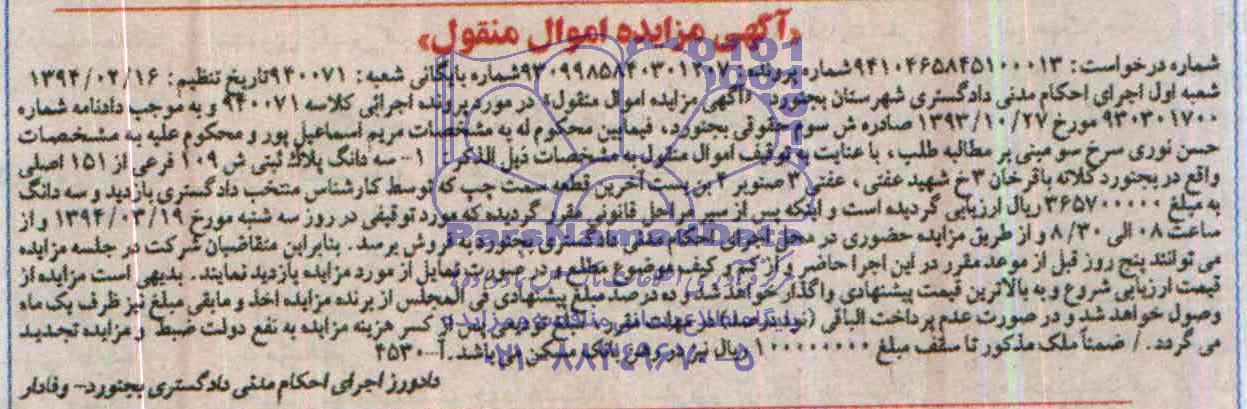 «آگهی مزایده اموال منقول»
شماره درخواست: ۹۴۱۰۴۶۵۸۴۵۱۰۰۰۱۳ شماره پرونده: شماره بایگانی شعبه: ۹۴۰۰۷۱ تاریخ تنظیم: ۱۳۹۴/۰۲/۱۶
شعبه اول اجرای احکام مدنی دادگستری شهرستان بجنورد «آگهی مزایده اموال منقول» در مورد پرونده اجرائی کلاسه ۹۴۰۰۷۱ و به موجب دادنامه شماره
۹۳۰۳۰۱۷۰۰ مورخ ۱۳۹۳/۱۰/۲۷ صادره ش سوم حقوقی بجنورد، فیمابین محکوم له به مشخصات مریم اسماعیل پور و محکوم علیه به مشخصات
حسن نوری سرخ سو مبنی بر مطالبه طلب، با عنایت به توقیف اموال منقول به مشخصات ذیل الذکر: ۱- سه دانگ پلاک ثبتی ش ۱۰۹ فرعی از ۱۵۱ اصلی
واقع در بجنورد کلاته باقرخان ۳ خ شهید عفتی، عفتی ۳ صنوبر ۲ بن بست آخرین قطعه سمت چپ که توسط کارشناس منتخب دادگستری بازدید و سه دانگ
به مبلغ ۳۶۵۷۰۰۰۰۰ ریال ارزیابی گردیده است و اینکه پس از سیر مراحل قانونی مقرر گردیده که مورد توقیفی در روز سه شنبه مورخ ۱۳۹۴/۰۳/۱۹ و از
ساعت ۰۸ الی ۸/۳۰ و از طریق مزایده حضوری در محل اجرای احکام مدنی دادگستری بجنورد به فروش برسد. بنابراین متقاضیان شرکت در جلسه مزایده
می توانند پنج روز قبل از موعد مقرر در این اجرا حاضر و از کم و کیف موضوع مطلع و در صورت تمایل از مورد مزایده بازدید نمایند. بدیهی است مزایده از
قیمت ارزیابی شروع و به بالاترین قیمت پیشنهادی واگذار خواهد شد و ده درصد مبلغ پیشنهادی فی المجلس از برنده مزایده اخذ و مابقی مبلغ نیز ظرف یک ماه
وصول خواهد شد و در صورت عدم پرداخت الباقی (نود درصد) در مهلت مقرر، مبلغ تودیعی پس از کسر هزینه مزایده به نفع دولت ضبط و مزایده تجدید
می گردد. / ضمناً ملک مذکور تا سقف مبلغ ۱۰۰۰۰۰۰۰۰ ریال نیز در رهن بانک مسکن می باشد. آ-۴۵۳۰
دادورز اجرای احکام مدنی دادگستری بجنورد- وفادار
ParsNamadData
۰۲۱-۸۸۳۴۹۶۷۰-۵